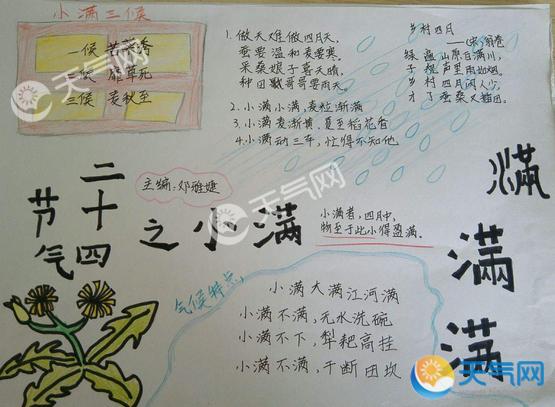 小满三候
一候 苦菜秀
二候 靡草死
三候 麦秋至
1.做天难做四月天,
蚕要温和麦要寒。
采桑娘子喜天晴,
种田哥哥要雨天。
2.小满小满,麦粒渐满
3.小满麦渐黄,夏至稻花香
4.小满动三车,忙得不知他
乡村四月
——(宋)翁卷
绿遍山原白满川,
子规声里雨如烟。
乡村四月闲人少,
才了蚕桑又插田。
主编:邓雅婕
二十四
节气
之小满
小满者,四月中,
物至于此小得盈满。
满
满
满
气候特点
小满大满江河满
小满不满,无水洗碗
小满不下,犁耙高挂
小满不满,干断田坎
天气网